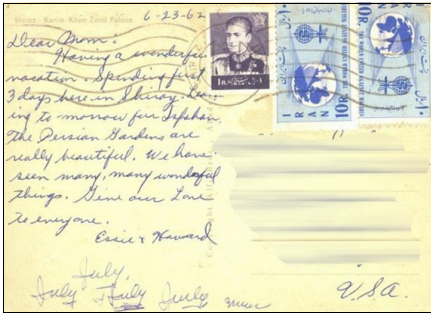 Shiraz - Karim-Khan Zend Palace
6-23-62
Dear Mom:
Having a wonderful
vacation. Spending first
3 days here in Shiraz, Leav-
ing to morrow for Isfahan.
The Persian Gardens are
really beautiful. We have
seen many, many wonderful
things. Give our Love
to everyone.
Essie & Howard
July.
July July July
U.S.A.
I RAN
10R.
I RAN
10R.